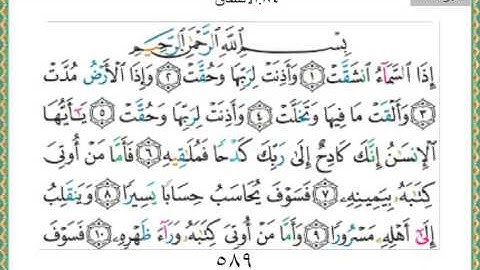 ٨٤.الانشقاق
بِسْمِ اللَّهِ الرَّحْمَٰنِ الرَّحِيمِ
إِذَا السَّمَاءُ انشَقَّتْ ١ وَأَذِنَتْ لِرَبِّهَا وَحُقَّتْ ٢ وَإِذَا الْأَرْضُ مُدَّتْ
٣ وَأَلْقَتْ مَا فِيهَا وَتَخَلَّتْ ٤ وَأَذِنَتْ لِرَبِّهَا وَحُقَّتْ ٥ يَٰأَيُّهَا
الْإِنسَٰنُ إِنَّكَ كَادِحٌ إِلَىٰ رَبِّكَ كَدْحًا فَمُلَٰقِيهِ ٦ فَأَمَّا مَنْ أُوتِيَ
كِتَٰبَهُ بِيَمِينِهِ ٧ فَسَوْفَ يُحَاسَبُ حِسَابًا يَسِيرًا ٨ وَيَنقَلِبُ
إِلَىٰ أَهْلِهِ مَسْرُورًا ٩ وَأَمَّا مَنْ أُوتِيَ كِتَٰبَهُ وَرَاءَ ظَهْرِهِ ١٠ فَسَوْفَ
٥٨٩